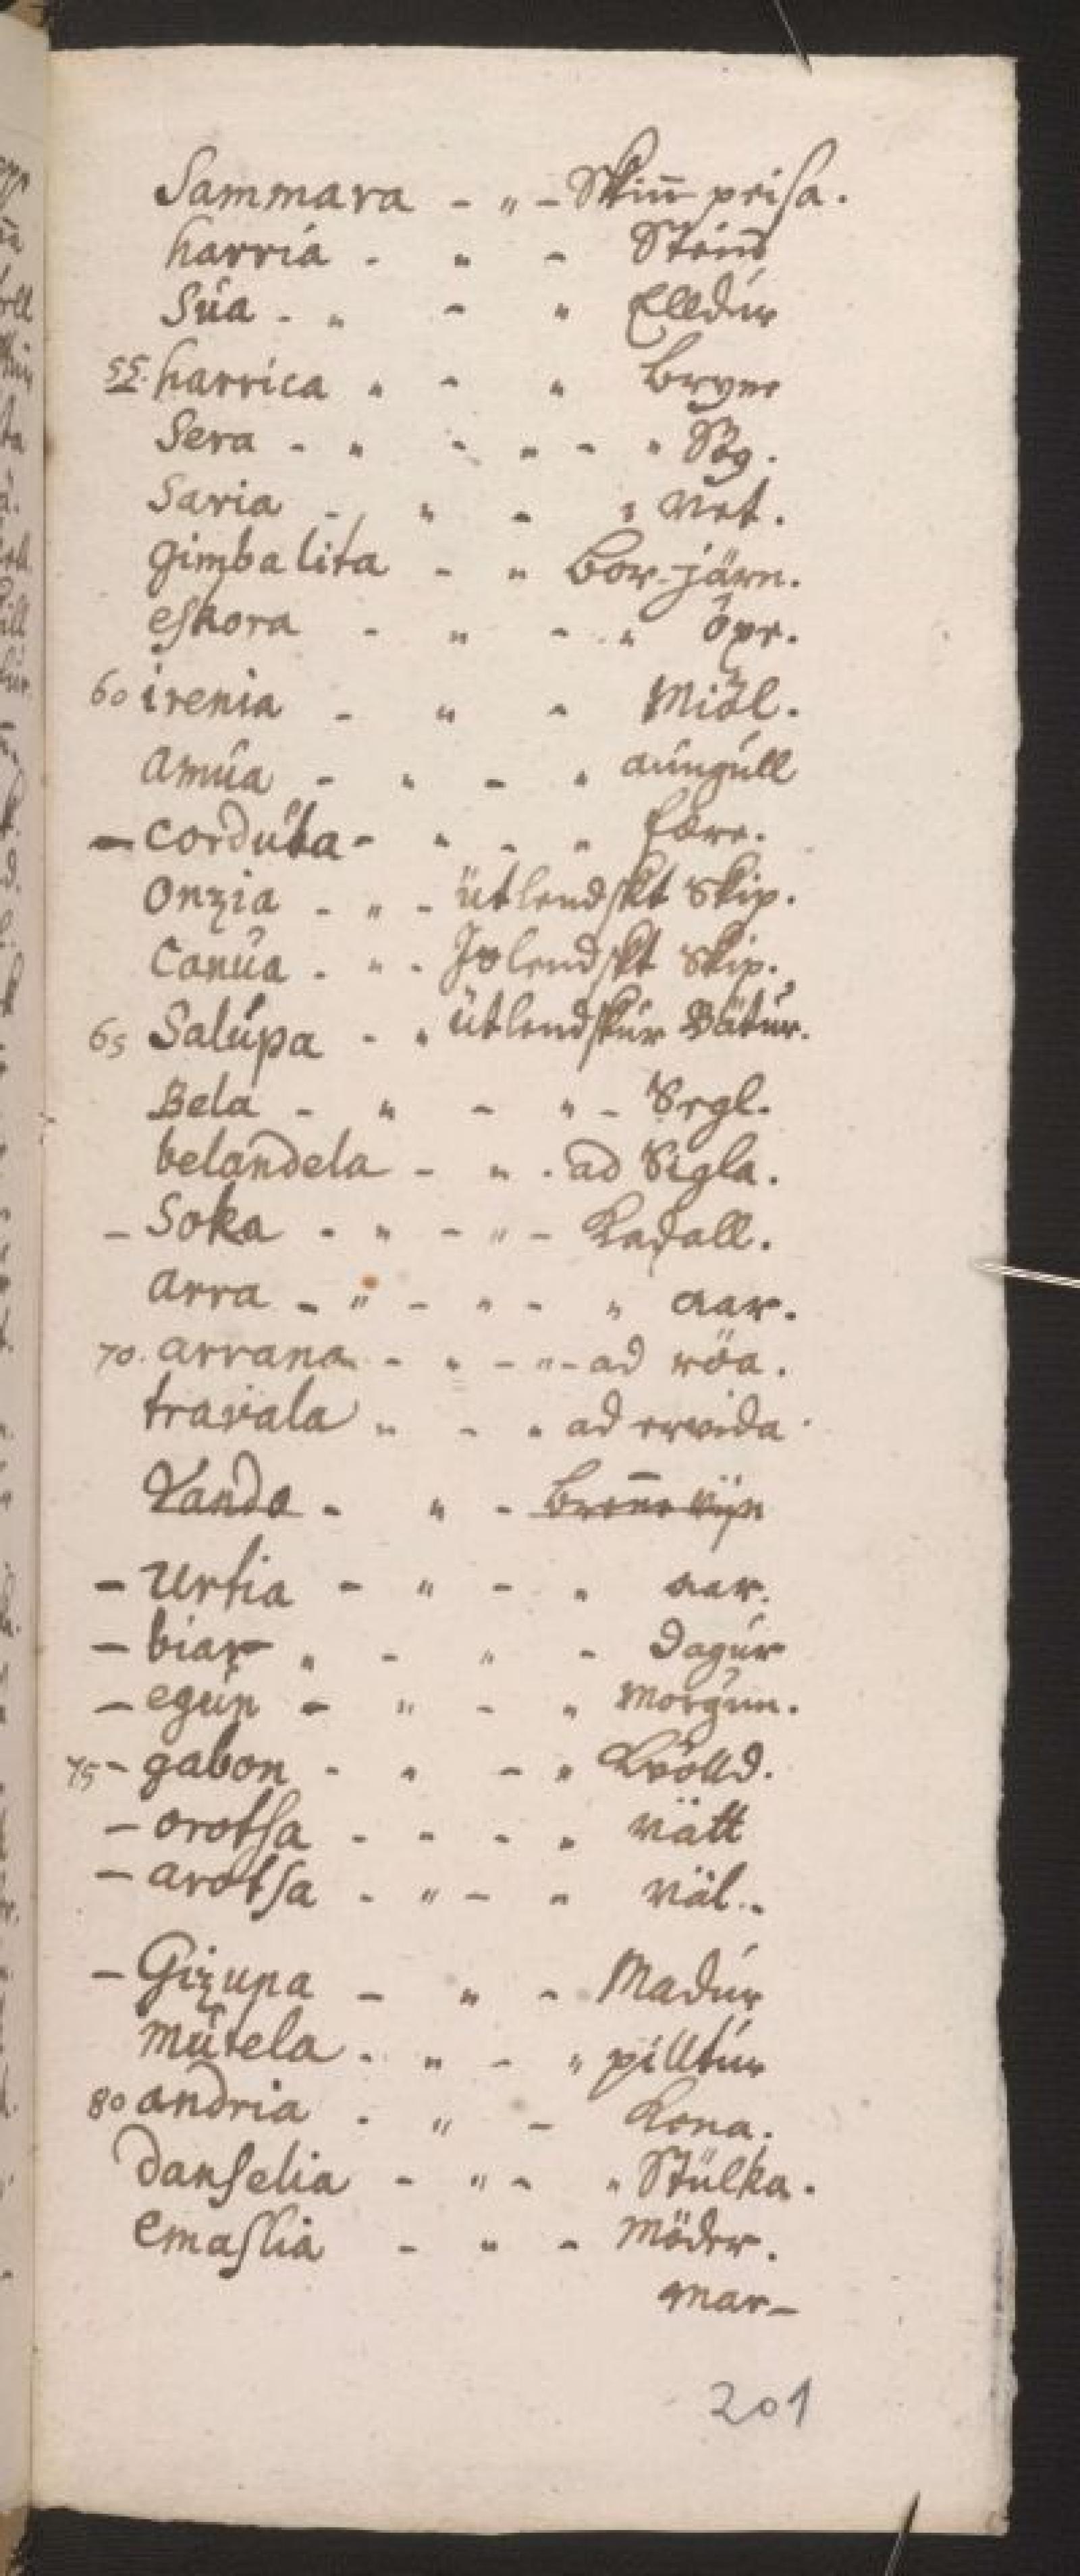 Sammara - „ - Skiñ peisa.
harria - „ - Steirn
Súa - „ - „ Elldúr
55. harrica „ - „ bryne
Sera - „ - „ - „ Sög.
Saria - „ - „ Net.
gimbalita - „ Bor-järn.
eskora - „ - „ öxe.
60 irenia - „ - Miöl.
amúa - „ - „ aúngúll
- Cordúka - „ - „ fære.
Onzia - „ - ütlendskt Skip.
Canúa - „ - Islendskt Skip.
65 Salúpa - „ ütlendskúr Bätúr.
Bela - „ - „ - Segl.
belandela - „ - ad Sigla.
- Soka - „ - „ - Kadall.
arra - „ - „ - „ aar.
70. arrana - „ - „ - ad röa.
travala „ - „ ad ervida
Vanda - „ - breñe vijn
- Urtia - „ - „ aar.
- biar „ - „ - Dagúr
- egún - „ - „ Morgun.
75 - gabon - „ - „ Kvölld.
- orotsa - „ - „ nätt
- arotsa - „ - „ näl..
- Gizuna - „ - Madúr
mútela - „ - „ pilltúr
80 andria - „ - Kona.
Danselia - „ - „ Stülka.
Emaslia - „ - Möder.
mar-
201